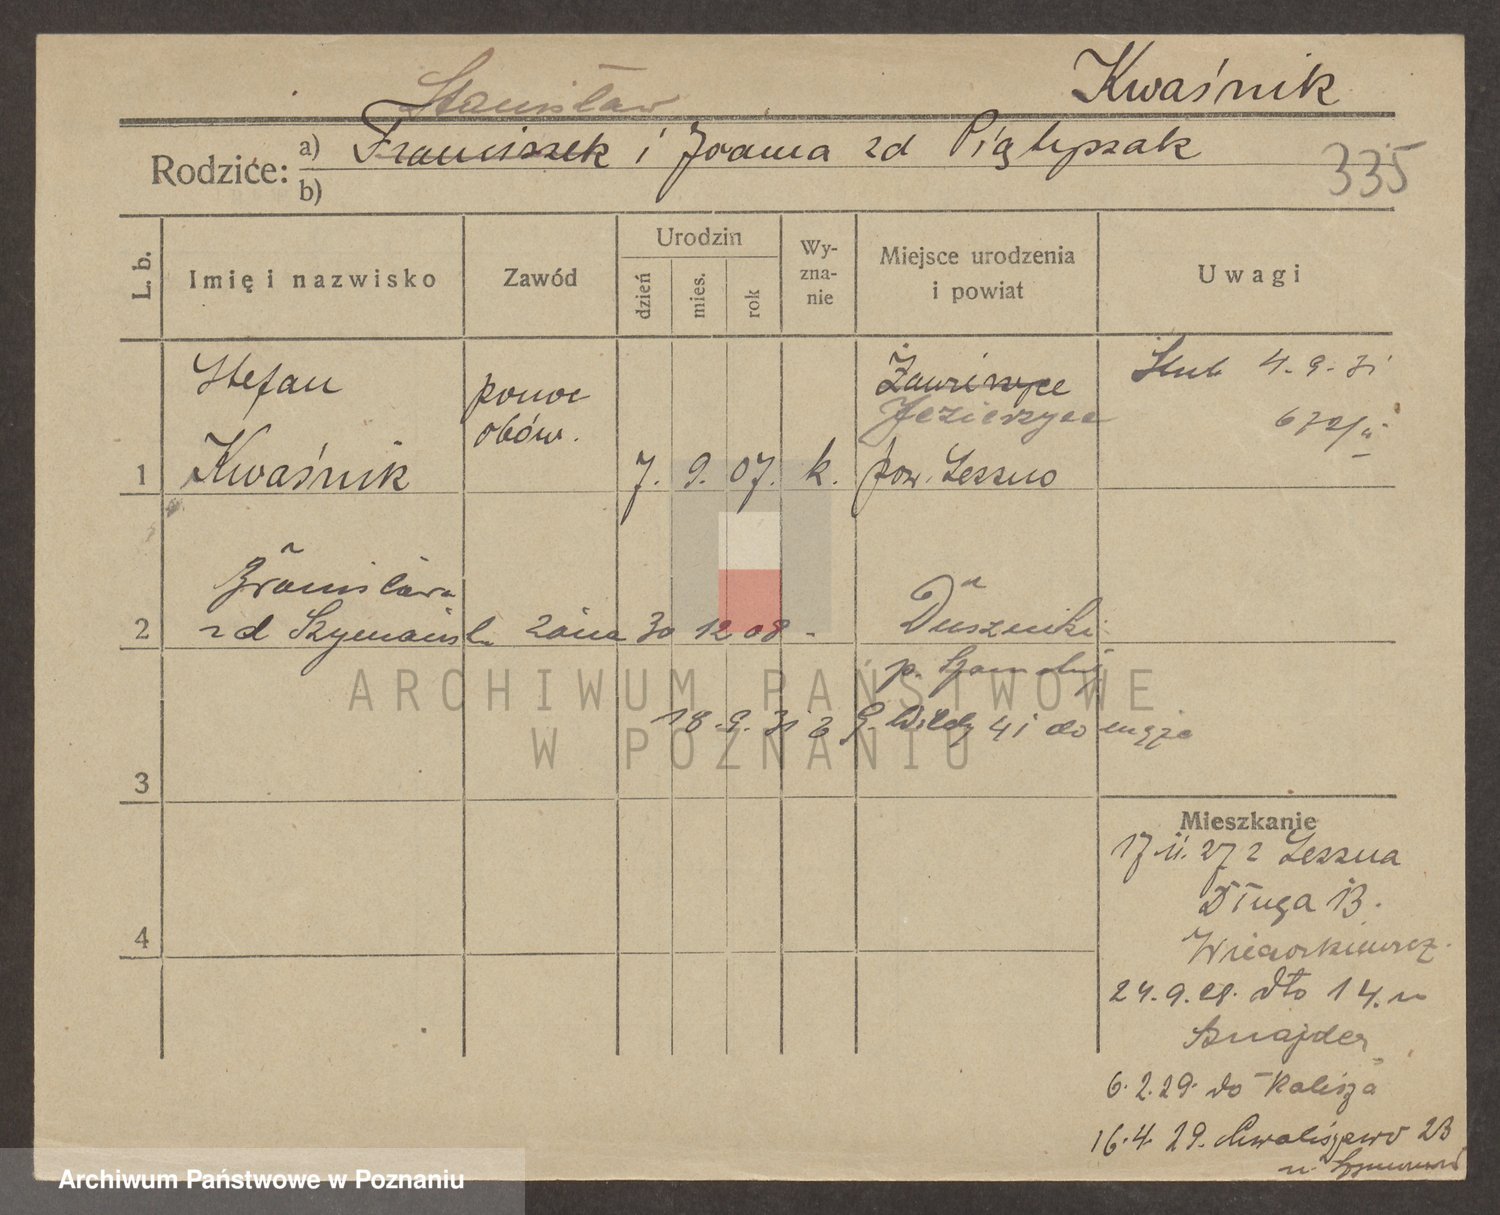 Kwaśnik
Stanisław
Rodzice: a) Franciszek i Joanna zd Piątyszak
b)
335
L. b.
Imię i nazwisko
Zawód
Urodzin
dzień
mies.
rok
Wy-
zna-
nie
Miejsce urodzenia
i powiat
Uwagi
1
Stefan
Kwaśnik
pomoc
obów.
7. 9. 07. k.
Jezierzyce
pow. Leszno
Ślub 4.9.31
2
Bronisława
zd Szymańsk
żona 30 12 08 -
Duszniki
p. Szamotuły
18.9.31 z G. Wildy 41 do męża
3
4
Mieszkanie
17.11.27 z Leszna
Długa 13.
24.9.28. dto 14. u
Sznajder
6.2.29. do Kalisza
16.4.29. Chwaliszewo 23
ARCHIWUM PAŃSTWOWE
W POZNANIU
Archiwum Państwowe w Poznaniu